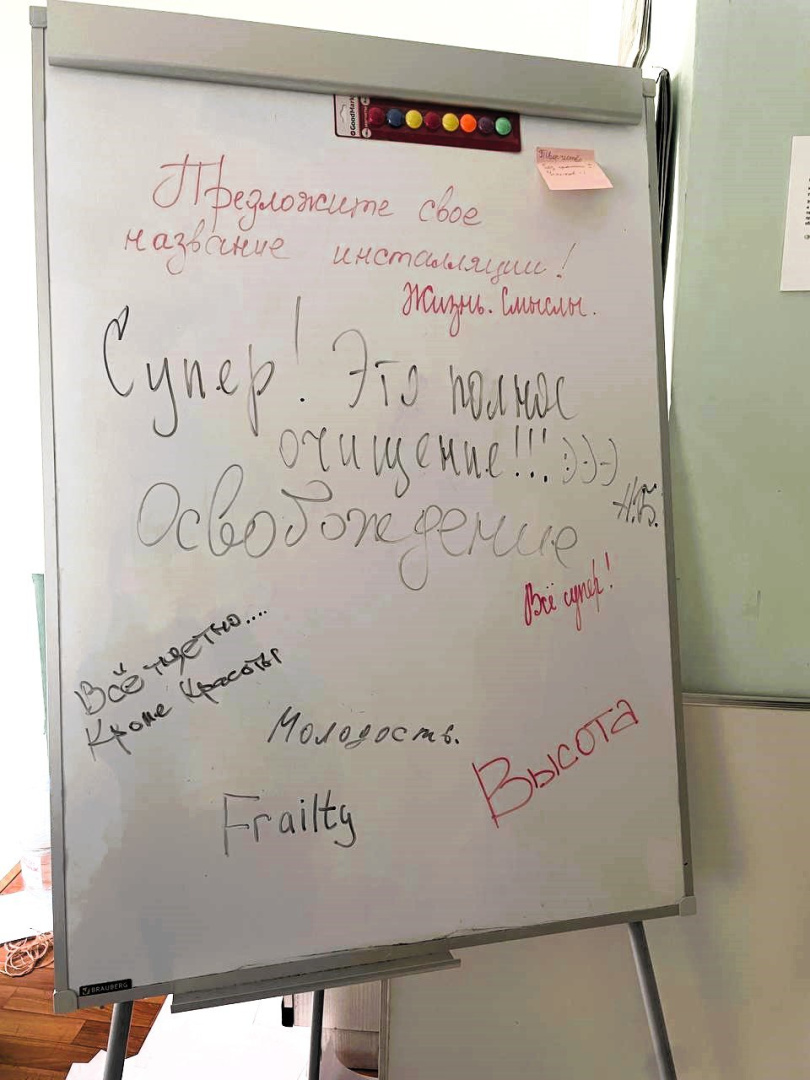 GoodMark
Предложите свое
название инсталляции!
Жизнь. Смыслы.
Супер! Это полное
очищение!!! :)-)-)
Н.Б.
Освобождение
Всё супер!
Всё тщетно....
Кроме Красоты
Молодость.
Высота
Frailty
BRAUBERG